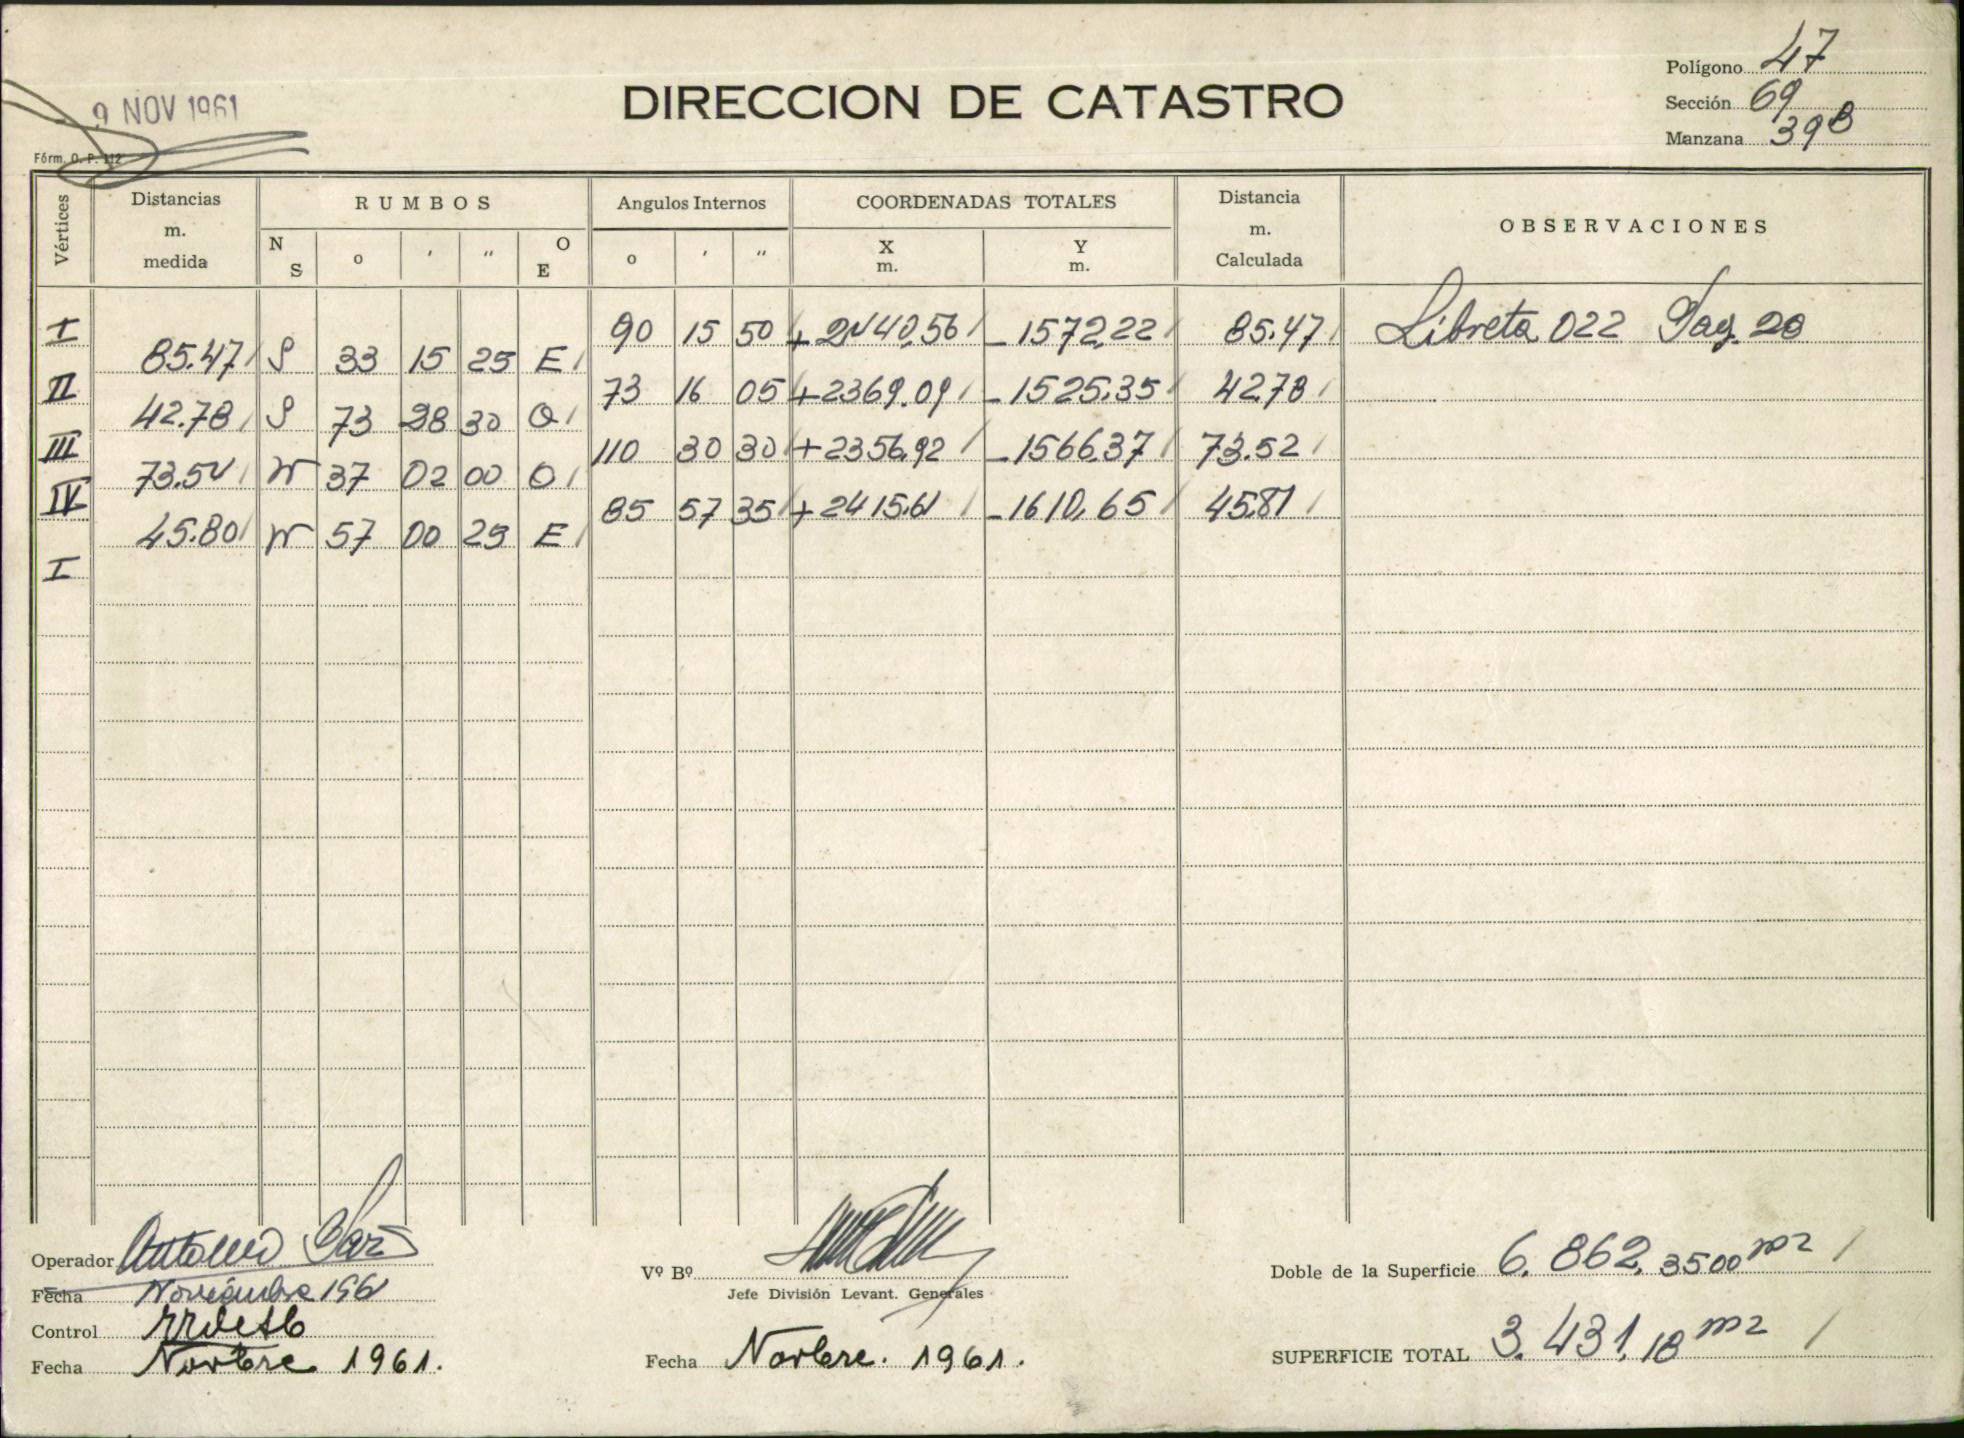 9 NOV 1961
DIRECCION DE CATASTRO
Polígono 47
Sección 69
Manzana 39B
Fórm. O. P. 112
Vértices Distancias m. medida RUMBOS Angulos Internos COORDENADAS TOTALES Distancia m. Calculada OBSERVACIONES
N S o ' " O E o ' " X m. Y m.
I 90 15 50 +2440,56 -1572,22 85.47 Libreta 022 Pag. 20
85.47 S 33 15 25 E
II 73 16 05 +2369.09 -1525.35 42.78
42.78 S 73 28 30 O
III 110 30 30 +2356,92 -1566.37 73.52
73.54 N 37 02 00 O
IV 85 57 35 +2415.61 -1610,65 45.81
45.80 N 57 00 25 E
I
Operador Antonio
Fecha Noviembre 1961
Control
Fecha Novbre 1961.
Vº Bº
Jefe División Levant. Generales
Fecha Novbre. 1961.
Doble de la Superficie 6.862,3500 m2
SUPERFICIE TOTAL 3.431,18 m2